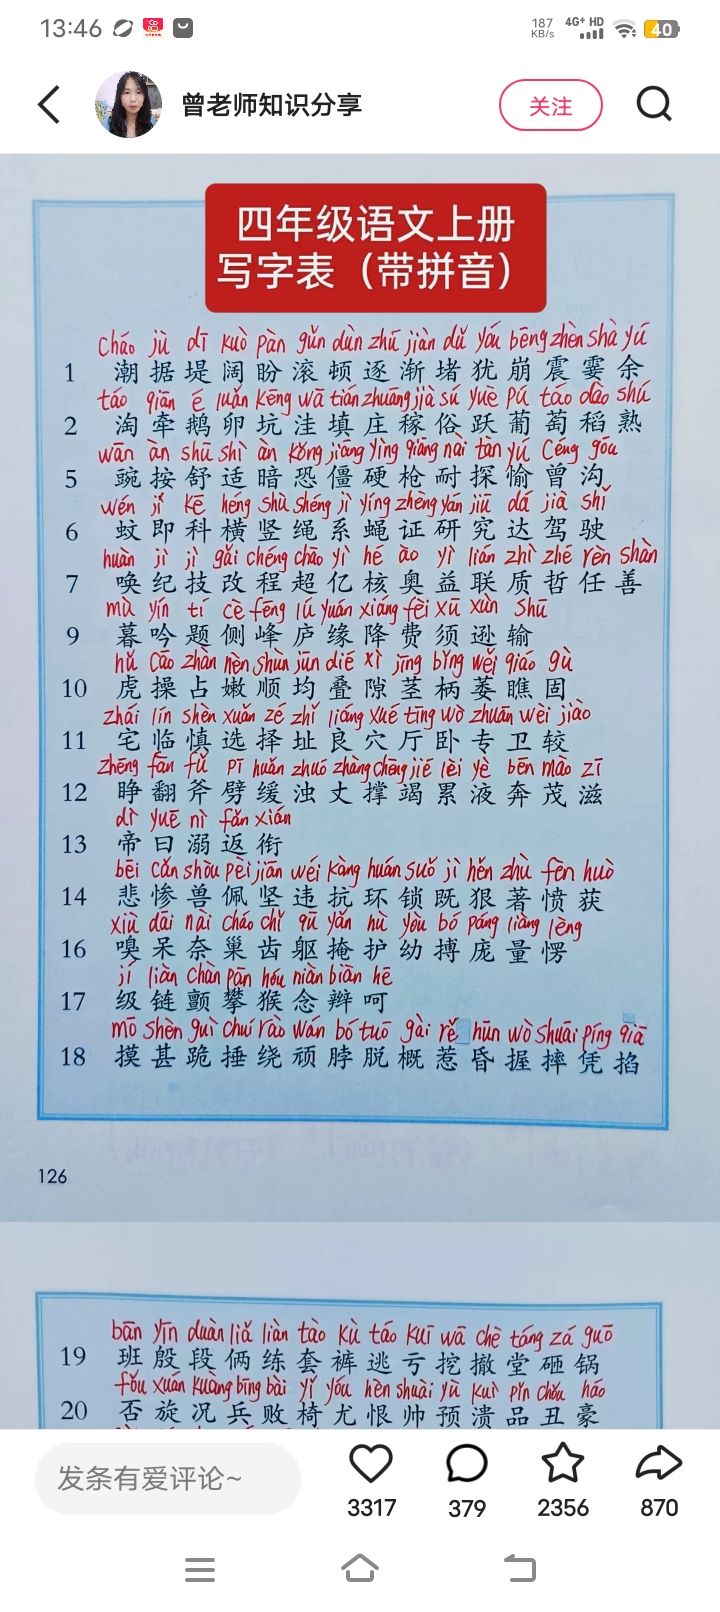 13:46 187 KB/s 4G+ HD 40
曾老师知识分享 关注
四年级语文上册
写字表（带拼音）
cháo jù dī kuò pàn gǔn dùn zhú jiàn dǔ yóu bēng zhèn shà yú
1 潮据堤阔盼滚顿逐渐堵犹崩震霎余
táo qiān é luǎn kēng wā tián zhuāng jià sú yuè pú táo dào shú
2 淘牵鹅卵坑洼填庄稼俗跃葡萄稻熟
wān àn shū shì àn kǒng jiāng yìng qiāng nài tàn yú céng gōu
5 豌按舒适暗恐僵硬枪耐探愉曾沟
wén jí kē héng shù shéng jì yíng zhèng yán jiū dá jià shǐ
6 蚊即科横竖绳系蝇证研究达驾驶
huàn jì jì gǎi chéng chāo yì hé ào yì lián zhì zhé rèn shàn
7 唤纪技改程超亿核奥益联质哲任善
mù yín tí cè fēng lú yuán xiáng fèi xū xùn shū
9 暮吟题侧峰庐缘降费须逊输
hǔ cāo zhàn nèn shùn jūn dié xì jīng bǐng wěi qiáo gù
10 虎操占嫩顺均叠隙茎柄萎瞧固
zhái lín shèn xuǎn zé zhǐ liáng xué tīng wò zhuān wèi jiào
11 宅临慎选择址良穴厅卧专卫较
zhēng fān fǔ pī huǎn zhuó zhàng chēng jié lèi yè bēn mào zī
12 睁翻斧劈缓浊丈撑竭累液奔茂滋
dì yuē nì fǎn xián
13 帝曰溺返衔
bēi cǎn shòu pèi jiān wéi kàng huán suǒ jì hěn zhù fèn huò
14 悲惨兽佩坚违抗环锁既狠著愤获
xiù dāi nài cháo chǐ qū yǎn hù yòu bó páng liàng lèng
16 嗅呆奈巢齿躯掩护幼搏庞量愣
jí liàn chàn pān hóu niàn biàn hē
17 级链颤攀猴念辫呵
mō shèn guì chuí rào wán bó tuō gài rě hūn wò shuāi píng qiā
18 摸甚跪捶绕顽脖脱概惹昏握摔凭掐
126
bān yīn duàn liǎ liàn tào kù táo kuī wā chè táng zá guō
19 班殷段俩练套裤逃亏挖撤堂砸锅
fǒu xuán kuàng bīng bài yǐ yóu hèn shuài yù kuì pǐn chǒu háo
20 否旋况兵败椅尤恨帅预溃品丑豪
发条有爱评论~ 3317 379 2356 870